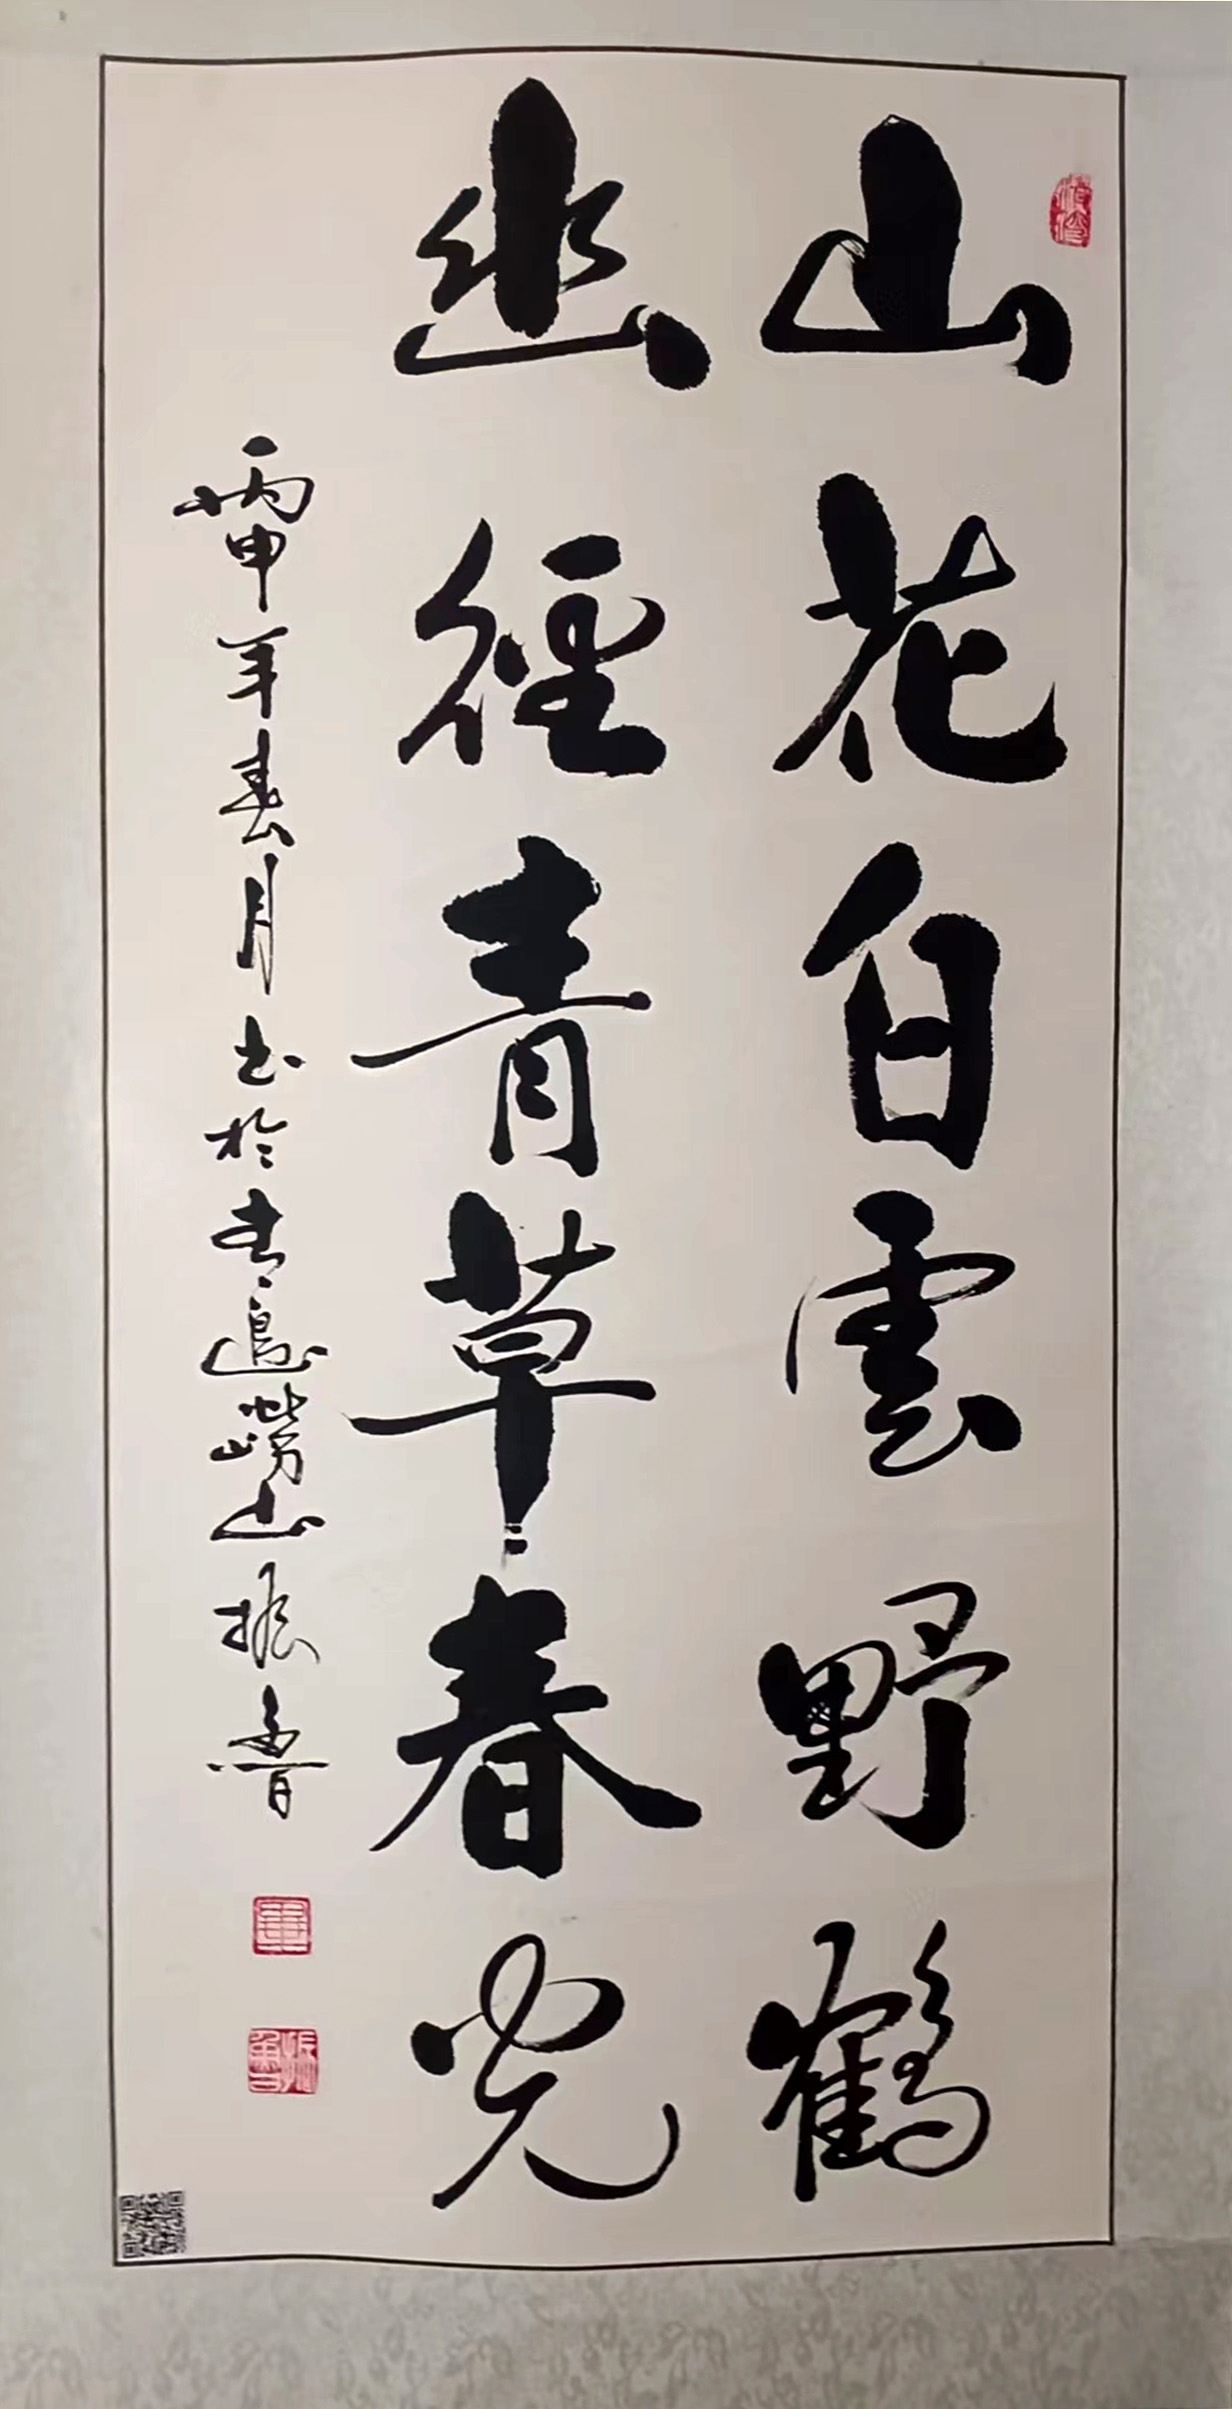 山花白雲野鶴
幽徑青草春光
丙申年春月书於青島嶗山振魯